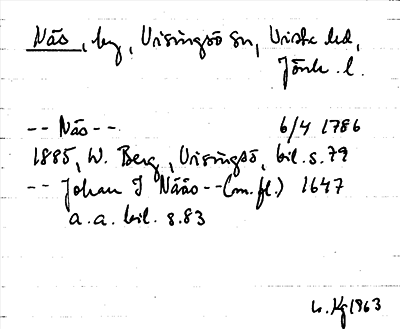 Näs, by, Visingsö sn, Vista hd,
Jönk. l.
-- Näs -- 6/4 1786
1885, W. Berg, Visingsö, bil. s. 79
-- Johan I Nääs -- (m.fl.) 1647
a.a. bil. s. 83
Kg 1963